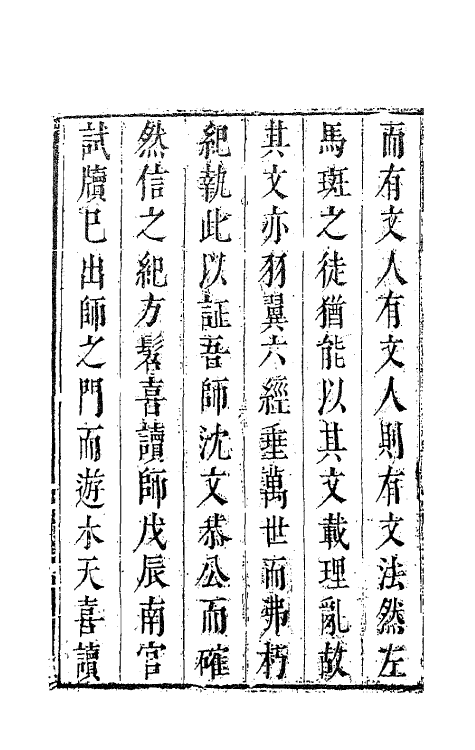 而有文人有文人則有文法然左
馬斑之徒猶能以其文載理亂故
其文亦羽翼六經垂萬世而弗朽
紀執此以証吾師沈文恭公而確
然信之紀方髫喜讀師戊辰南宮
試牘已出師之門而遊木天喜讀